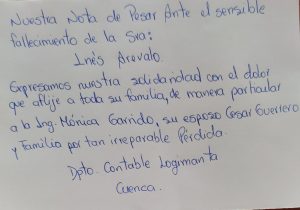 Nuestra Nota de Pesar Ante el sensible
fallecimiento de la Sra:
Inés Arevalo.
Expresamos nuestra solidaridad con el dolor
que aflije a toda su familia, de manera particular
a la Ing. Mónica Garrido, su esposo Cesar Guerrero
y Familia por tan irreparable Pérdida.
Dpto. Contable Logimanta
Cuenca.